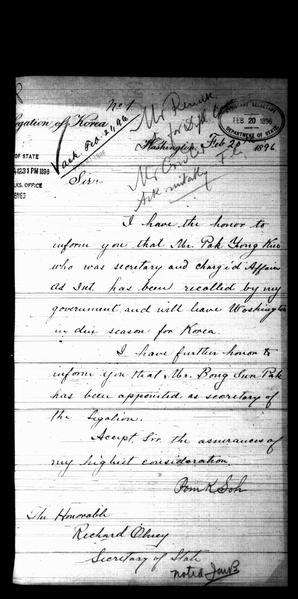 No 1.
Legation of Korea
Ack. Feb. 21, 96
Mr Renick
for Dipl.
FEB 20 1896
DEPARTMENT OF STATE
Washington, Feb 20th 1896
OF STATE
1896
OFFICE
Mr
Ack suitably
Sir:
I have the honor to
inform you that Mr. Pak Yong Kiu
who was secretary and chargé d'Affaires
ad Int. has been recalled by my
government and will leave Washington
in due season for Korea.
I have further honor to
inform you that Mr. Bong Sun Pak
has been appointed as secretary of
the legation.
Accept Sir the assurances of
my highest consideration.
Pom K. Soh
The Honorable
Richard Olney
Secretary of State
noted